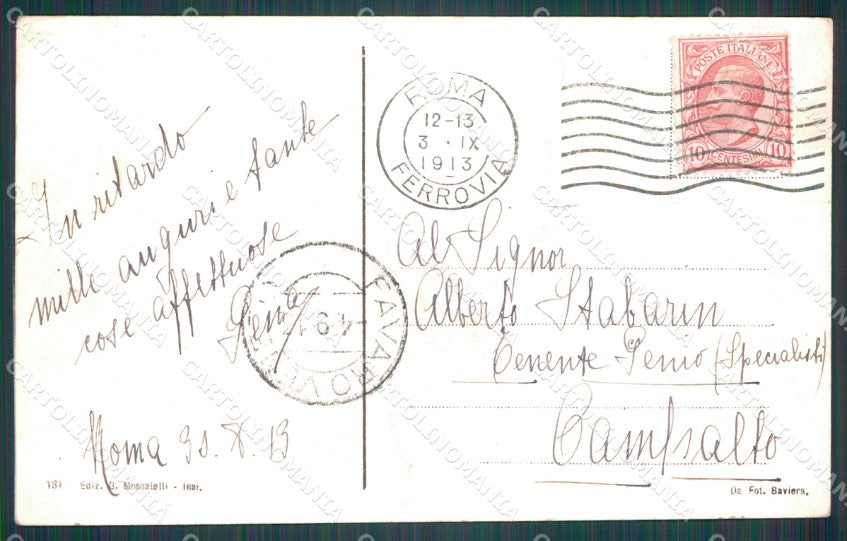 In ritardo
mille auguri e tante
cose affettuose
Gemo
Roma
13
137 Ediz. G. Moscatelli - Iesi.
ROMA
12-13
3 · IX
1913
FERROVIA
POSTE ITALIANE
10 CENTESIMI 10
FAVARO
4 9 1
Al Signor
Alberto Stabarin
Tenente Genio (Specialisti)
Campalto
Da Fot. Baviera.
CARTOLINOMANIA